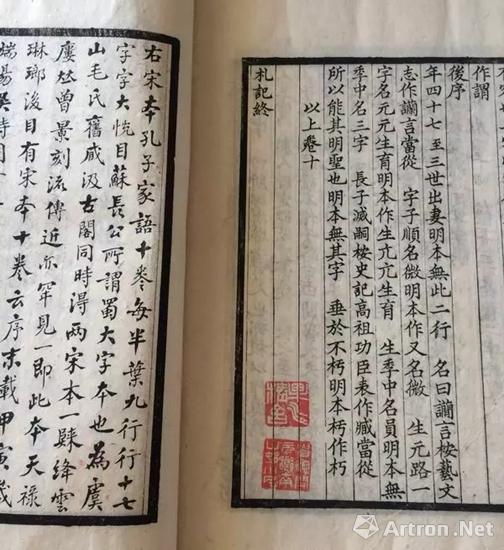 作謂
後序
年四十七 至三世出妻明本無此二行 名曰讕言桉藝文
志作讕言當從 字子順名微明本作又名微 生元路一
字名元元生育明本作生亢亢生育 生季中名員明本無
季中名三字 長子滅嗣桉史記高祖功臣表作臧當從
所以能其明聖也明本無其字 垂於不朽明本朽作朽
以上卷十
札記終
右宋本孔子家語十卷每半葉九行行十七
字字大悅目蘇長公所謂蜀大字本也為虞
山毛氏舊臧汲古閣同時得兩宋本一歸絳雲
廔曾景刻流傳近亦罕見一即此本天祿
琳瑯後目有宋本十卷云序末載甲寅歲
端陽吳時用
Artron.Net